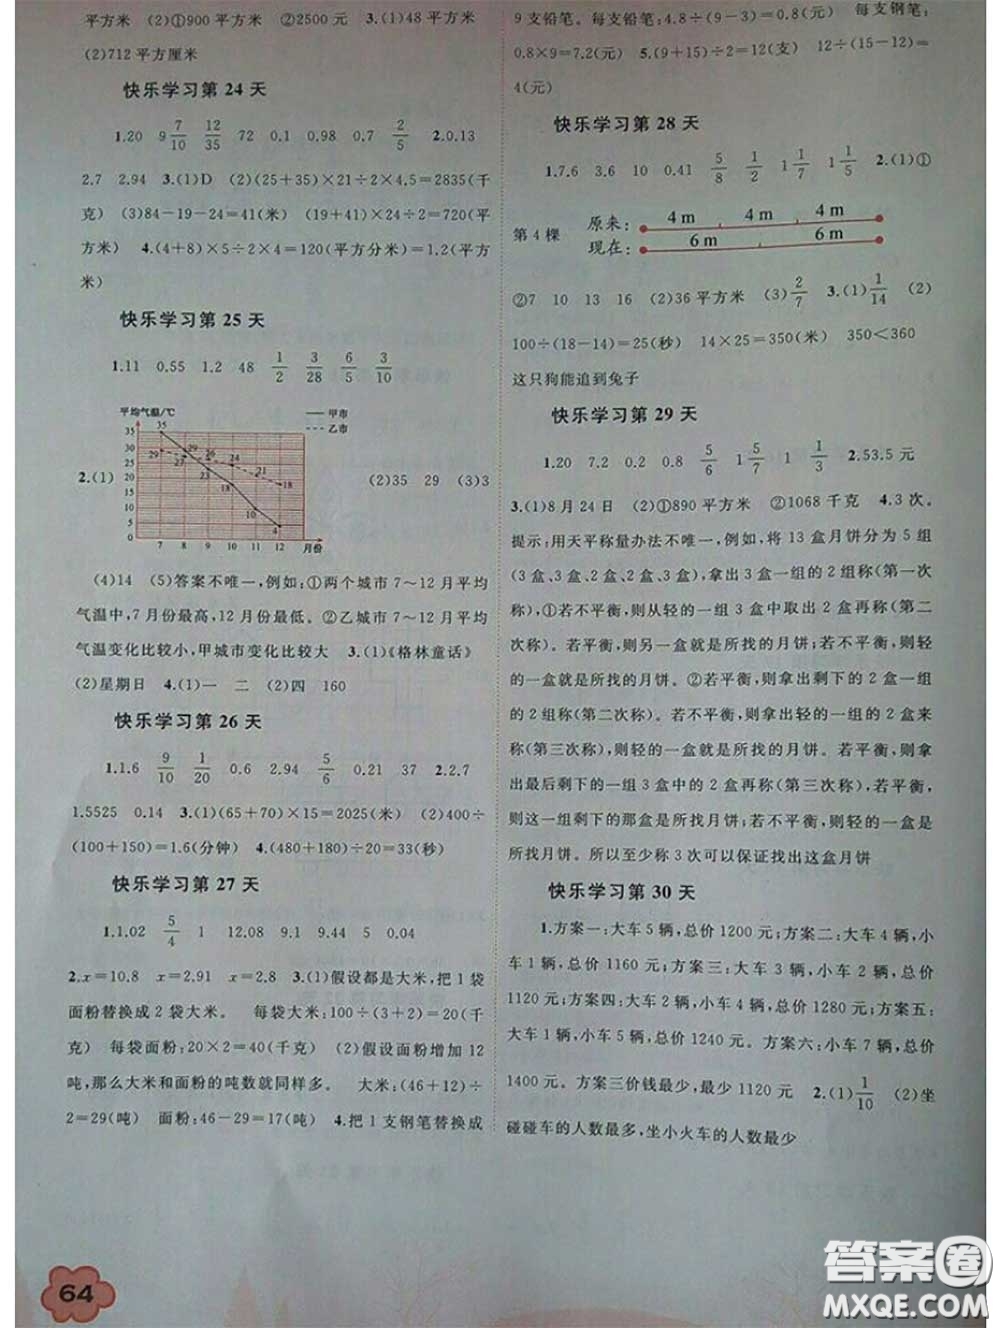 平方米　(2)①900 平方米　②2500 元　3.(1)48 平方米
(2)712 平方厘米
快乐学习第 24 天
1.20　9 7/10　12/35　72　0.1　0.98　0.7　2/5　2.0.13
2.7　2.94　3.(1)D　(2)(25＋35)×21÷2×4.5＝2835(千
克)　(3)84－19－24＝41(米)　(19＋41)×24÷2＝720(平
方米)　4.(4＋8)×5÷2×4＝120(平方分米)＝1.2(平方
米)
快乐学习第 25 天
1.11　0.55　1.2　48　1/2　3/28　6/5　3/10
平均气温/℃
甲市
乙市
35 30 25 20 15 10 5 0
35 29 23 18 10 4
29 27 26 24 21 18
7 8 9 10 11 12 月份
2.(1)　(2)35　29　(3)3
(4)14　(5)答案不唯一,例如:①两个城市 7～12 月平均
气温中,7 月份最高,12 月份最低。②乙城市 7～12 月平均
气温变化比较小,甲城市变化比较大　3.(1)《格林童话》
(2)星期日　4.(1)一　二　(2)四　160
快乐学习第 26 天
1.1.6　9/10　1/20　0.6　2.94　5/6　0.21　37　2.2.7
1.5525　0.14　3.(1)(65＋70)×15＝2025(米)　(2)400÷
(100＋150)＝1.6(分钟)　4.(480＋180)÷20＝33(秒)
快乐学习第 27 天
1.1.02　5/4　1　12.08　9.1　9.44　5　0.04
2.x＝10.8　x＝2.91　x＝2.8　3.(1)假设都是大米,把 1 袋
面粉替换成 2 袋大米。　每袋大米:100÷(3＋2)＝20(千
克)　每袋面粉:20×2＝40(千克)　(2)假设面粉增加 12
吨,那么大米和面粉的吨数就同样多。　大米:(46＋12)÷
2＝29(吨)　面粉:46－29＝17(吨)　4.把 1 支钢笔替换成
9 支铅笔。每支铅笔:4.8÷(9－3)＝0.8(元)　每支钢笔:
0.8×9＝7.2(元)　5.(9＋15)÷2＝12(支)　12÷(15－12)＝
4(元)
快乐学习第 28 天
1.7.6　3.6　10　0.41　5/8　1/2　1 1/7　1 1/5　2.(1)①
第 4 棵　原来:　4 m　4 m　4 m
现在:　6 m　6 m
②7　10　13　16　(2)36 平方米　(3)2/7　3.(1)1/14　(2)
100÷(18－14)＝25(秒)　14×25＝350(米)　350＜360
这只狗能追到兔子
快乐学习第 29 天
1.20　7.2　0.2　0.8　5/6　1 5/7　1　1/3　2.53.5 元
3.(1)8 月 24 日　(2)①890 平方米　②1068 千克　4.3 次。
提示:用天平称量办法不唯一,例如,将 13 盒月饼分为 5 组
(3 盒、3 盒、2 盒、2 盒、3 盒),拿出 3 盒一组的 2 组称(第一次
称),①若不平衡,则从轻的一组 3 盒中取出 2 盒再称(第二
次称)。若平衡,则另一盒就是所找的月饼。若不平衡,则轻
的一盒就是所找的月饼。②若平衡,则拿出剩下的 2 盒一组
的 2 组称(第二次称)。若不平衡,则拿出轻的一组的 2 盒来
称(第三次称),则轻的一盒就是所找的月饼。若平衡,则拿
出最后剩下的一组 3 盒中的 2 盒再称(第三次称),若平衡,
则这一组剩下的那盒是所找月饼;若不平衡,则轻的一盒是
所找月饼。所以至少称 3 次可以保证找出这盒月饼
快乐学习第 30 天
1.方案一:大车 5 辆,总价 1200 元;方案二:大车 4 辆,小
车 1 辆,总价 1160 元;方案三:大车 3 辆,小车 2 辆,总价
1120 元;方案四:大车 2 辆,小车 4 辆,总价 1280 元;方案五:
大车 1 辆,小车 5 辆,总价 1240 元。方案六:小车 7 辆,总价
1400 元。方案三价钱最少,最少 1120 元　2.(1)1/10　(2)坐
碰碰车的人数最多,坐小火车的人数最少
64
答案圈
MXQE.COM